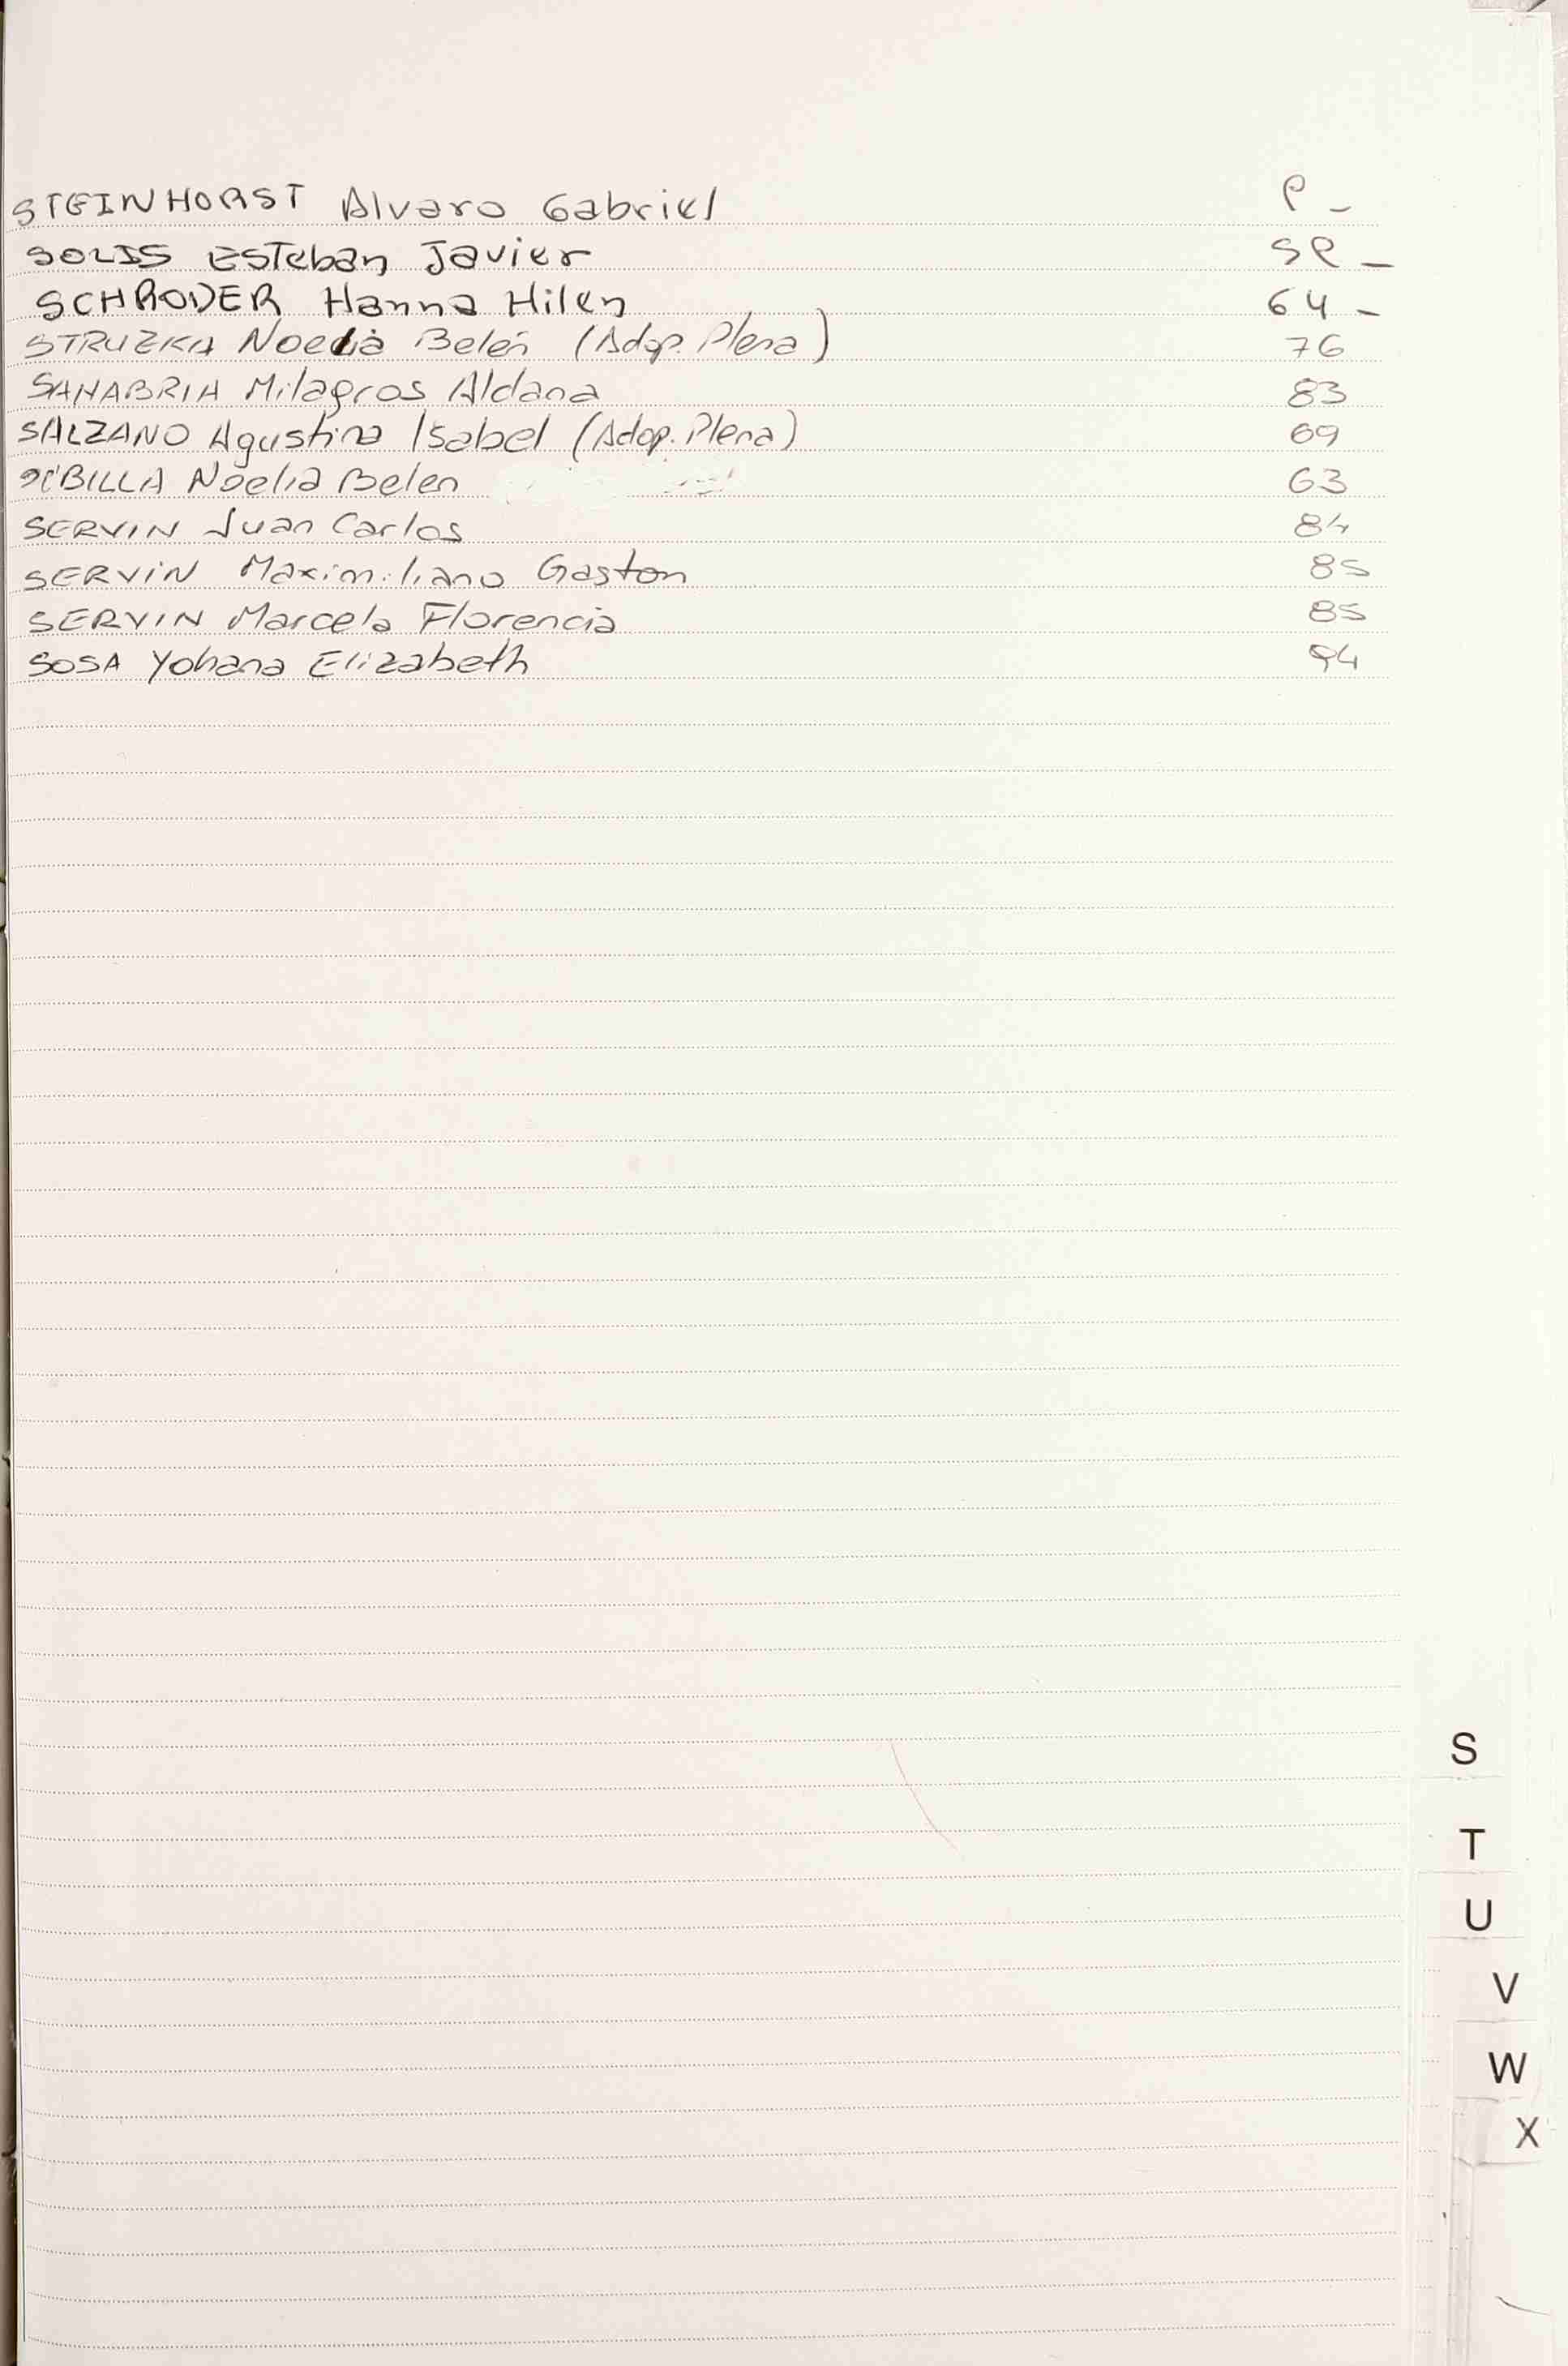 STEINHORST Alvaro Gabriel 9 -
SOLIS Esteban Javier 59 -
SCHRODER Hanna Hilen 64 -
STRUZKA Noelia Belén (Adop. Plena) 76
SANABRIA Milagros Aldana 83
SALZANO Agustina Isabel (Adop. Plena) 69
Noelia Belen 63
SERVIN Juan Carlos 84
SERVIN Maximiliano Gaston 85
SERVIN Marcela Florencia 85
SOSA Yohana Elizabeth 94
S
T
U
V
W
X